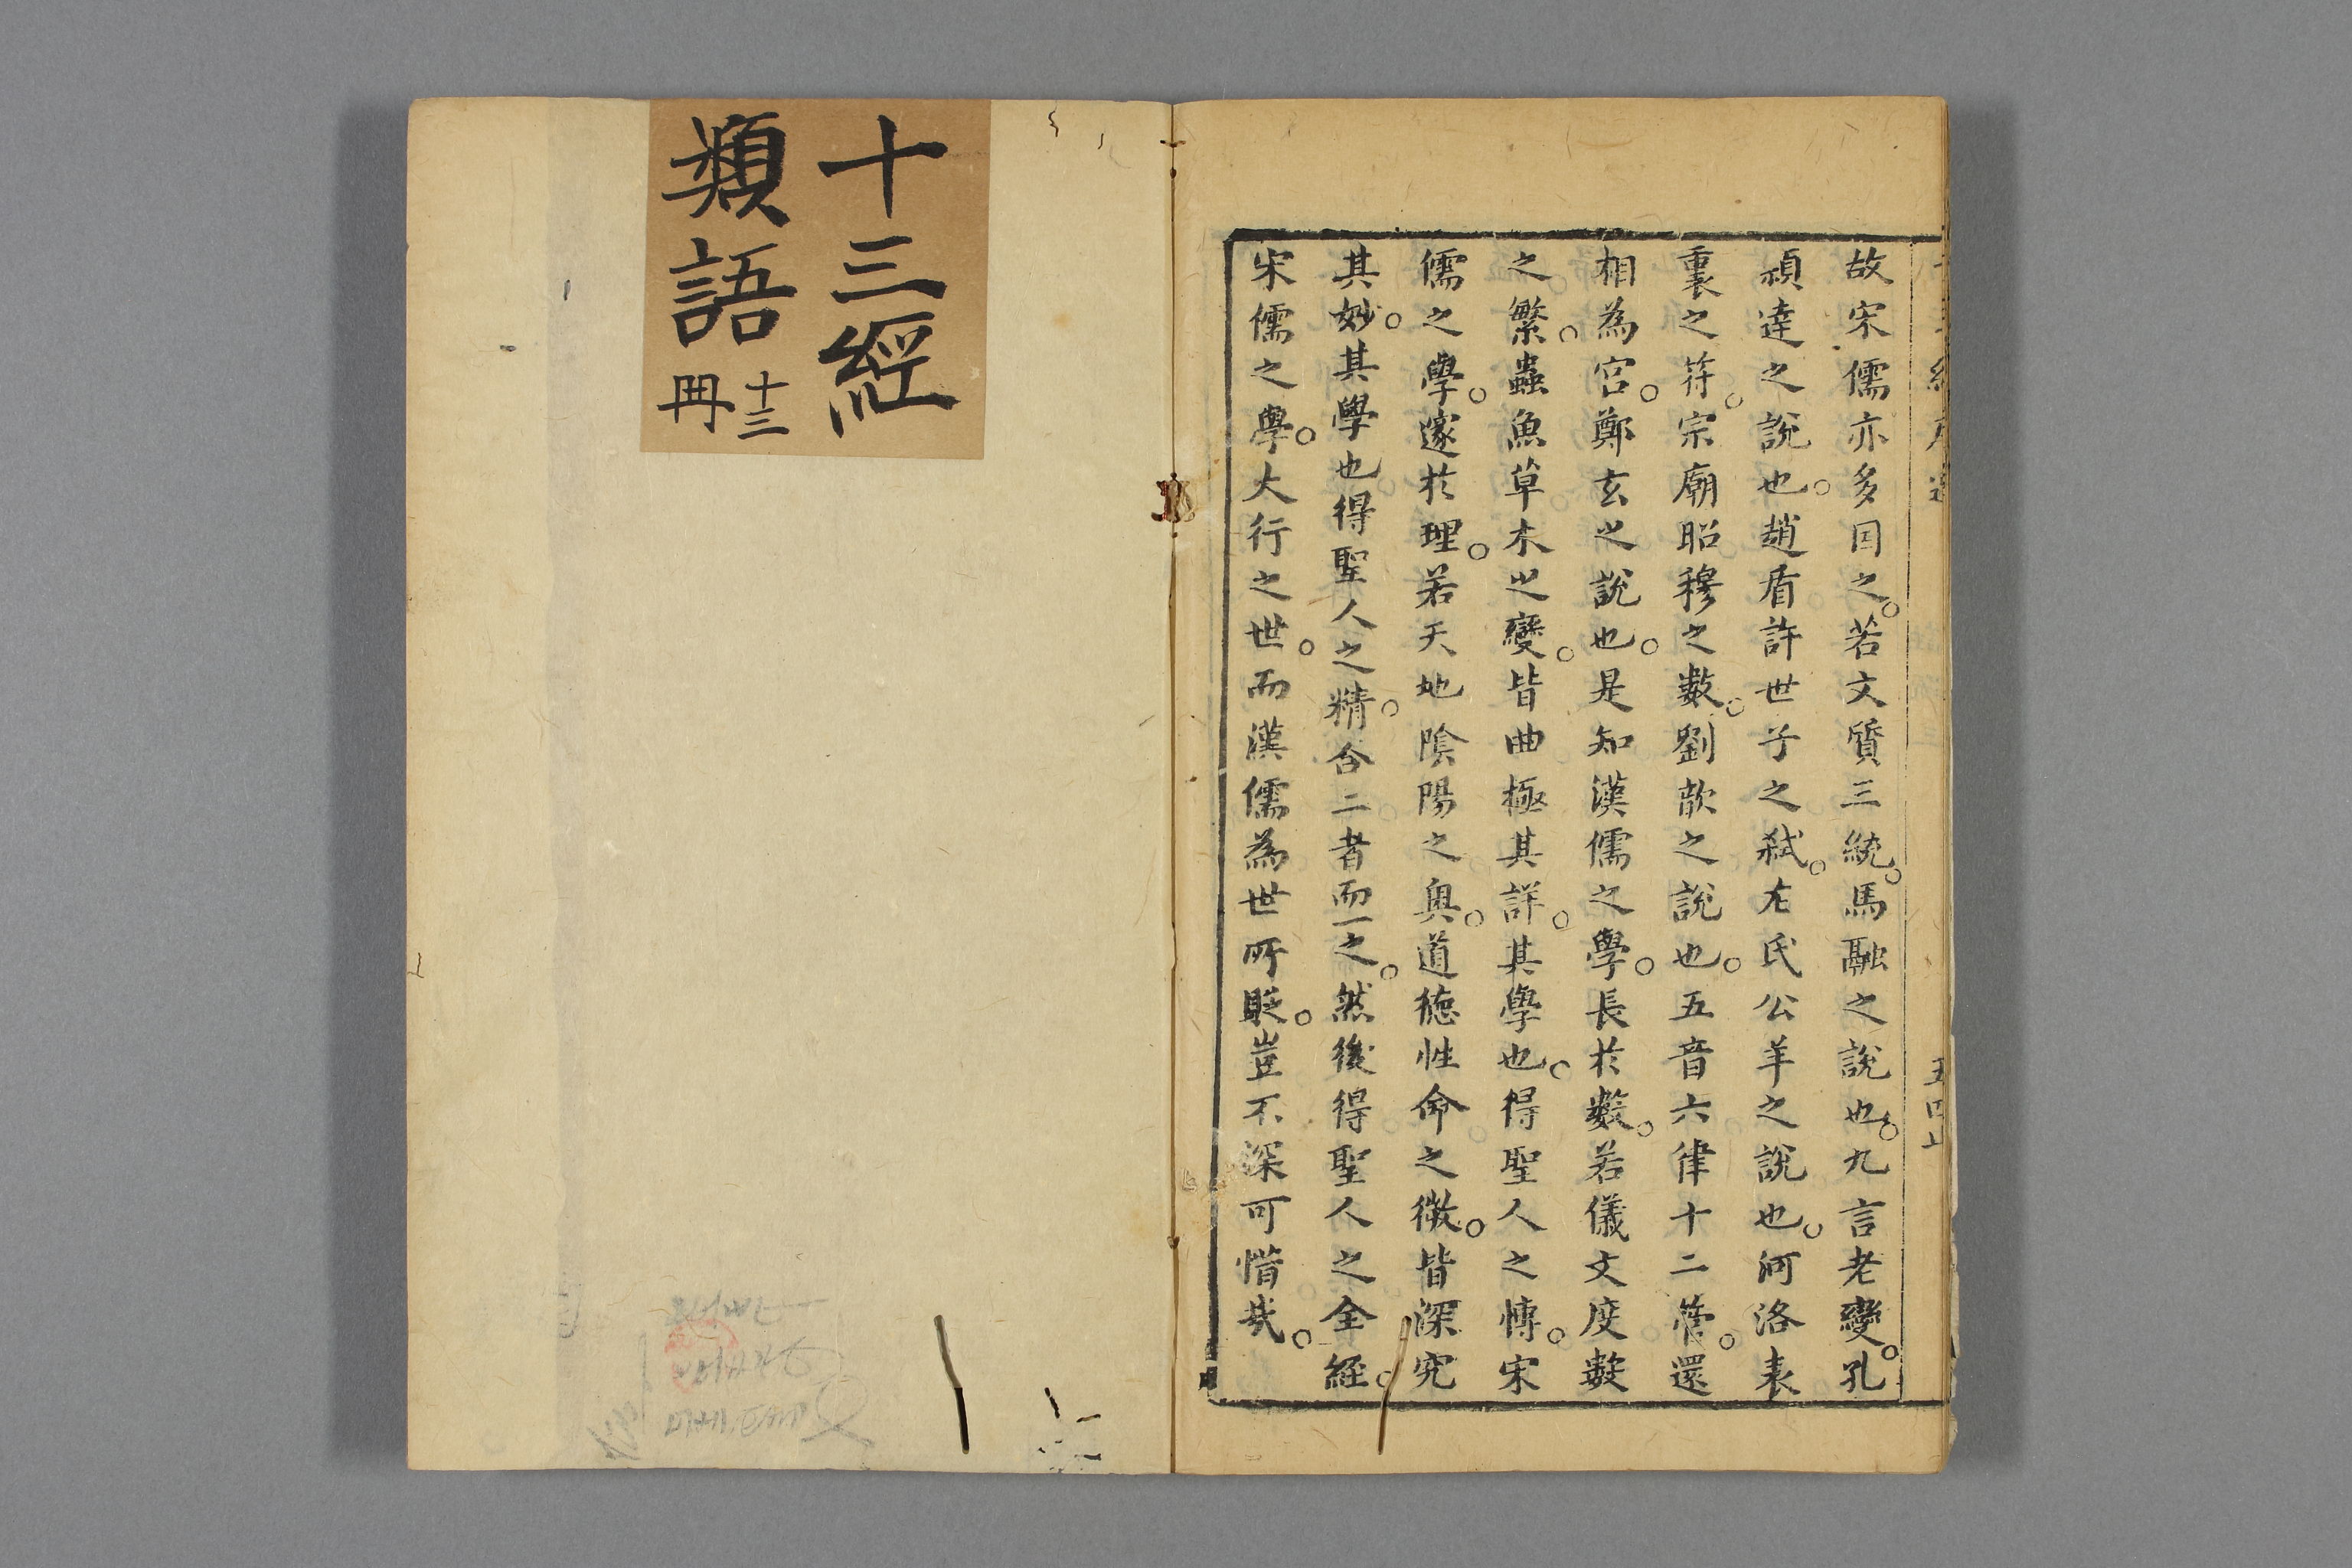 故宋儒亦多因之。若文質三統。馬融之說也。九言老變。孔
穎達之說也。趙盾許世子之弒。左氏公羊之說也。河洛表
裏之符。宗廟昭穆之數。劉歆之說也。五音六律十二管。還
相為宮。鄭玄之說也。是知漢儒之學。長於數。若儀文度數
之繁。蟲魚草木之變。皆曲極其詳。其學也。得聖人之博。宋
儒之學。邃於理。若天地陰陽之奧。道德性命之微。皆深究
其妙。其學也得聖人之精。合二者而一之。然後得聖人之全經。
宋儒之學。大行之世。而漢儒為世所貶。豈不深可惜哉。
十三經
類語
十三
冊